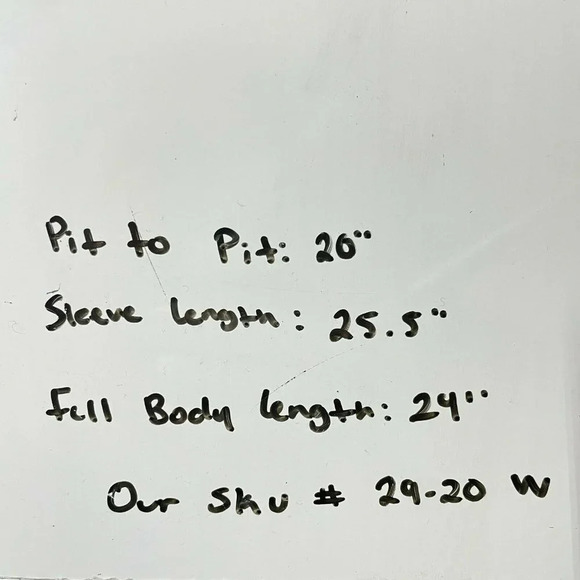 Pit to Pit: 20"
Sleeve length: 25.5"
Full Body length: 24"
Our Sku # 29-20 W